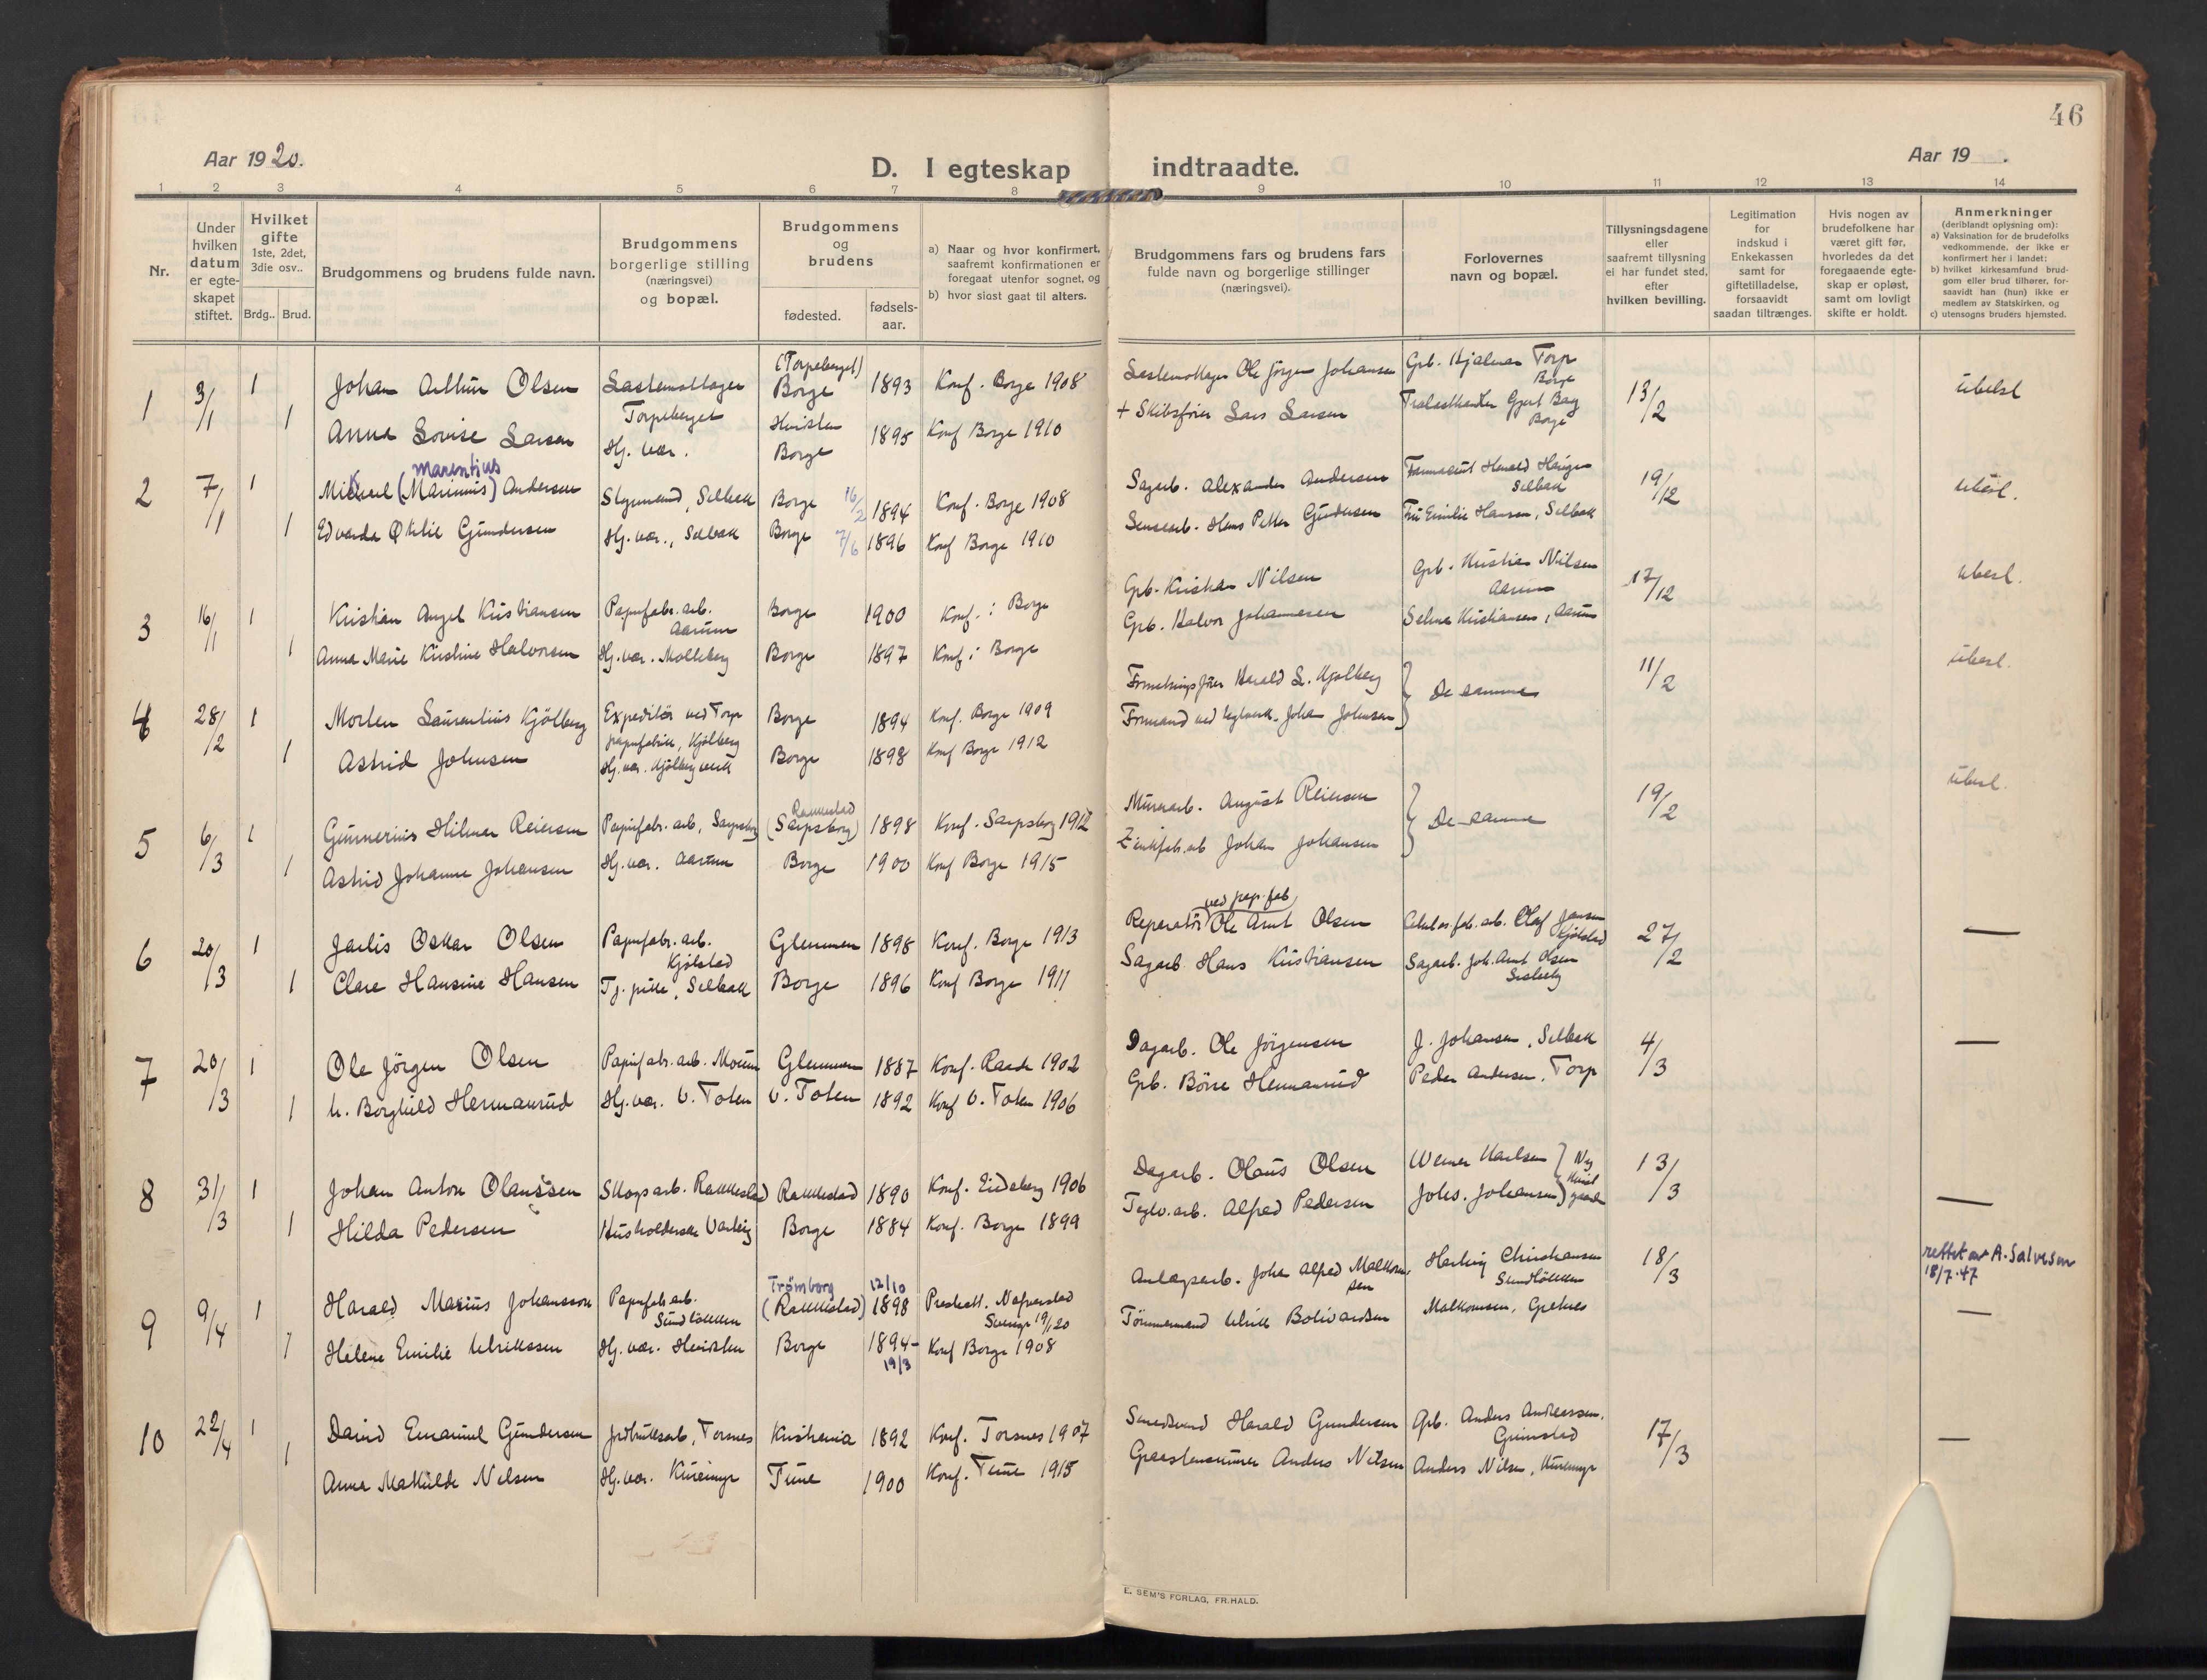 46
Aar 1920.
D. I egteskap indtraadte.
Aar 19 .
1 2 3 4 5 6 7 8 9 10 11 12 13 14
Nr.
Under hvilken datum er egteskapet stiftet.
Hvilket gifte 1ste, 2det, 3die osv..
Brdg.. Brud.
Brudgommens og brudens fulde navn.
Brudgommens borgerlige stilling (næringsvei) og bopæl.
Brudgommens og brudens
fødested.
fødsels-aar.
a) Naar og hvor konfirmert, saafremt konfirmationen er foregaat utenfor sognet, og
b) hvor sidst gaat til alters.
Brudgommens fars og brudens fars fulde navn og borgerlige stillinger (næringsvei).
Forlovernes navn og bopæl.
Tillysningsdagene eller saafremt tillysning ei har fundet sted, efter hvilken bevilling.
Legitimation for indskud i Enkekassen samt for giftetilladelse, forsaavidt saadan tiltrænges.
Hvis nogen av brudefolkene har været gift før, hvorledes da det foregaaende egteskap er opløst, samt om lovligt skifte er holdt.
Anmerkninger (deriblandt oplysning om):
a) Vaksination for de brudefolks vedkommende, der ikke er konfirmert her i landet;
b) hvilket kirkesamfund brudgom eller brud tilhører, forsaavidt han (hun) ikke er medlem av Statskirken, og
c) utensogns bruders hjemsted.
1 3/1 1 Johan Arthur Olsen Lastemottager Torpeberget (Torpeberget) Borge 1893 Konf. Borge 1908 Lastemottager Ole Jörgen Johansen Grb. Hjalmar Torp Borge 13/2 ubesl
1 Anna Lovise Larsen Hj. vær. Borge 1895 Konf Borge 1910 + Skibsfører Lars Larsen Borge
2 7/1 1 Mikael (Marinius) Marentius Andersen Selbak Borge 16/2 1894 Konf. Borge 1908 Sagarb. Alexander Andersen Selbak 19/12 ubesl.
1 Edvarda Otilie Gundersen Hj. vær., Selbak Borge 7/6 1896 Konf Borge 1910 Hans Petter Gundersen Fru Emilie Hansen, Selbak
3 16/1 1 Kristian Angel Kristiansen Papirfabr. arb. Aarum Borge 1900 Konf. i Borge Grb. Kristian Nilsen Grb. Kristian Nilsen Aarum 17/12 ubesl.
1 Anna Marie Kristine Halvorsen Hj. vær. Molteberg Borge 1897 Konf i Borge Grb. Halvor Johannesen Selma Kristiansen, Aarum
4 28/2 1 Morten Laurentius Kjölberg Expeditör ved Torp papirfabrik, Kjölberg Borge 1894 Konf. Borge 1909 Forretningsfører Harald L. Kjølberg } De samme 11/2 ubesl.
1 Astrid Johnsen Hj. vær. Kjölberg Borge 1898 Konf Borge 1912 Formand ved teglverk. Johan Johnsen
5 6/3 1 Gunnerius Hilmar Reiersen Papirfabr. arb, Sarpsborg Rakkestad (Sarpsborg) 1898 Konf. Sarpsborg 1912 Murerarb. August Reiersen } De samme 19/2 ubesl.
1 Astrid Johanne Johansen Hj. vær. Aarum Borge 1900 Konf Borge 1915 Zinkfab. arb Johan Johansen
6 20/3 1 Jarlis Oskar Olsen Papirfabr. arb. Kjölstad Glemmen 1898 Konf. Borge 1913 Reparatör ved pap. fab. Ole Arnt Olsen Olaf Jansen Kjölstad 27/2 —
1 Clara Hansine Hansen Tj. pike, Selbak Borge 1896 Konf Borge 1911 Sagarb. Hans Kristiansen Sagarb. Joh. Arnt Olsen
7 20/3 1 Ole Jörgen Olsen Papirfabr. arb. Moum Glemmen 1887 Konf. Raade 1902 Dagarb. Ole Jörgensen J. Johansen, Selbak 4/3 —
1 Borghild Hermanrud Hj. vær. V. Toten V. Toten 1892 Konf V. Toten 1906 Grb. Börre Hermanrud Peder Andersen, Torp
8 31/3 1 Johan Anton Olaussen Skogsarb. Rakkestad Rakkestad 1890 Konf. Eidsberg 1906 Dagarb. Olaus Olsen Werner Karlsen 13/3 —
1 Hilda Pedersen Husholderske Borge 1884 Konf. Borge 1899 Teglv. arb. Alfred Pedersen Johs. Johansen
9 9/4 1 Harald Marius Johansson Papirfab. arb. Sundlökken Trømborg (Rakkestad) 12/10 1898 Prestatt. Nafverstad Sverige 19/1 20 Anlægsarb. Johan Alfred Malkomsen Christiansen Sundlökken 18/3 rettet av A. Salvesen 18/7.47 —
1 Helene Emilie Ulrikssen Hj. vær. Borge 1894 19/3 Konf Borge 1908 Tømmermand Ulrik Bolivardsen Malkomsen, Gretnes
10 22/4 1 David Emanuel Gundersen Jordbruksarb, Torsnes Kristiania 1892 Konf. Torsnes 1907 Smedsvend Harald Gundersen Grb. Anders Andreassen. Grimstad 17/3 —
1 Anna Mathilde Nilsen Hj. vær. Kuremyr Tune 1900 Konf. Tune 1915 Anders Nilsen Anders Nilsen, Kuremyr
E. SEM'S FORLAG, FR.HALD.